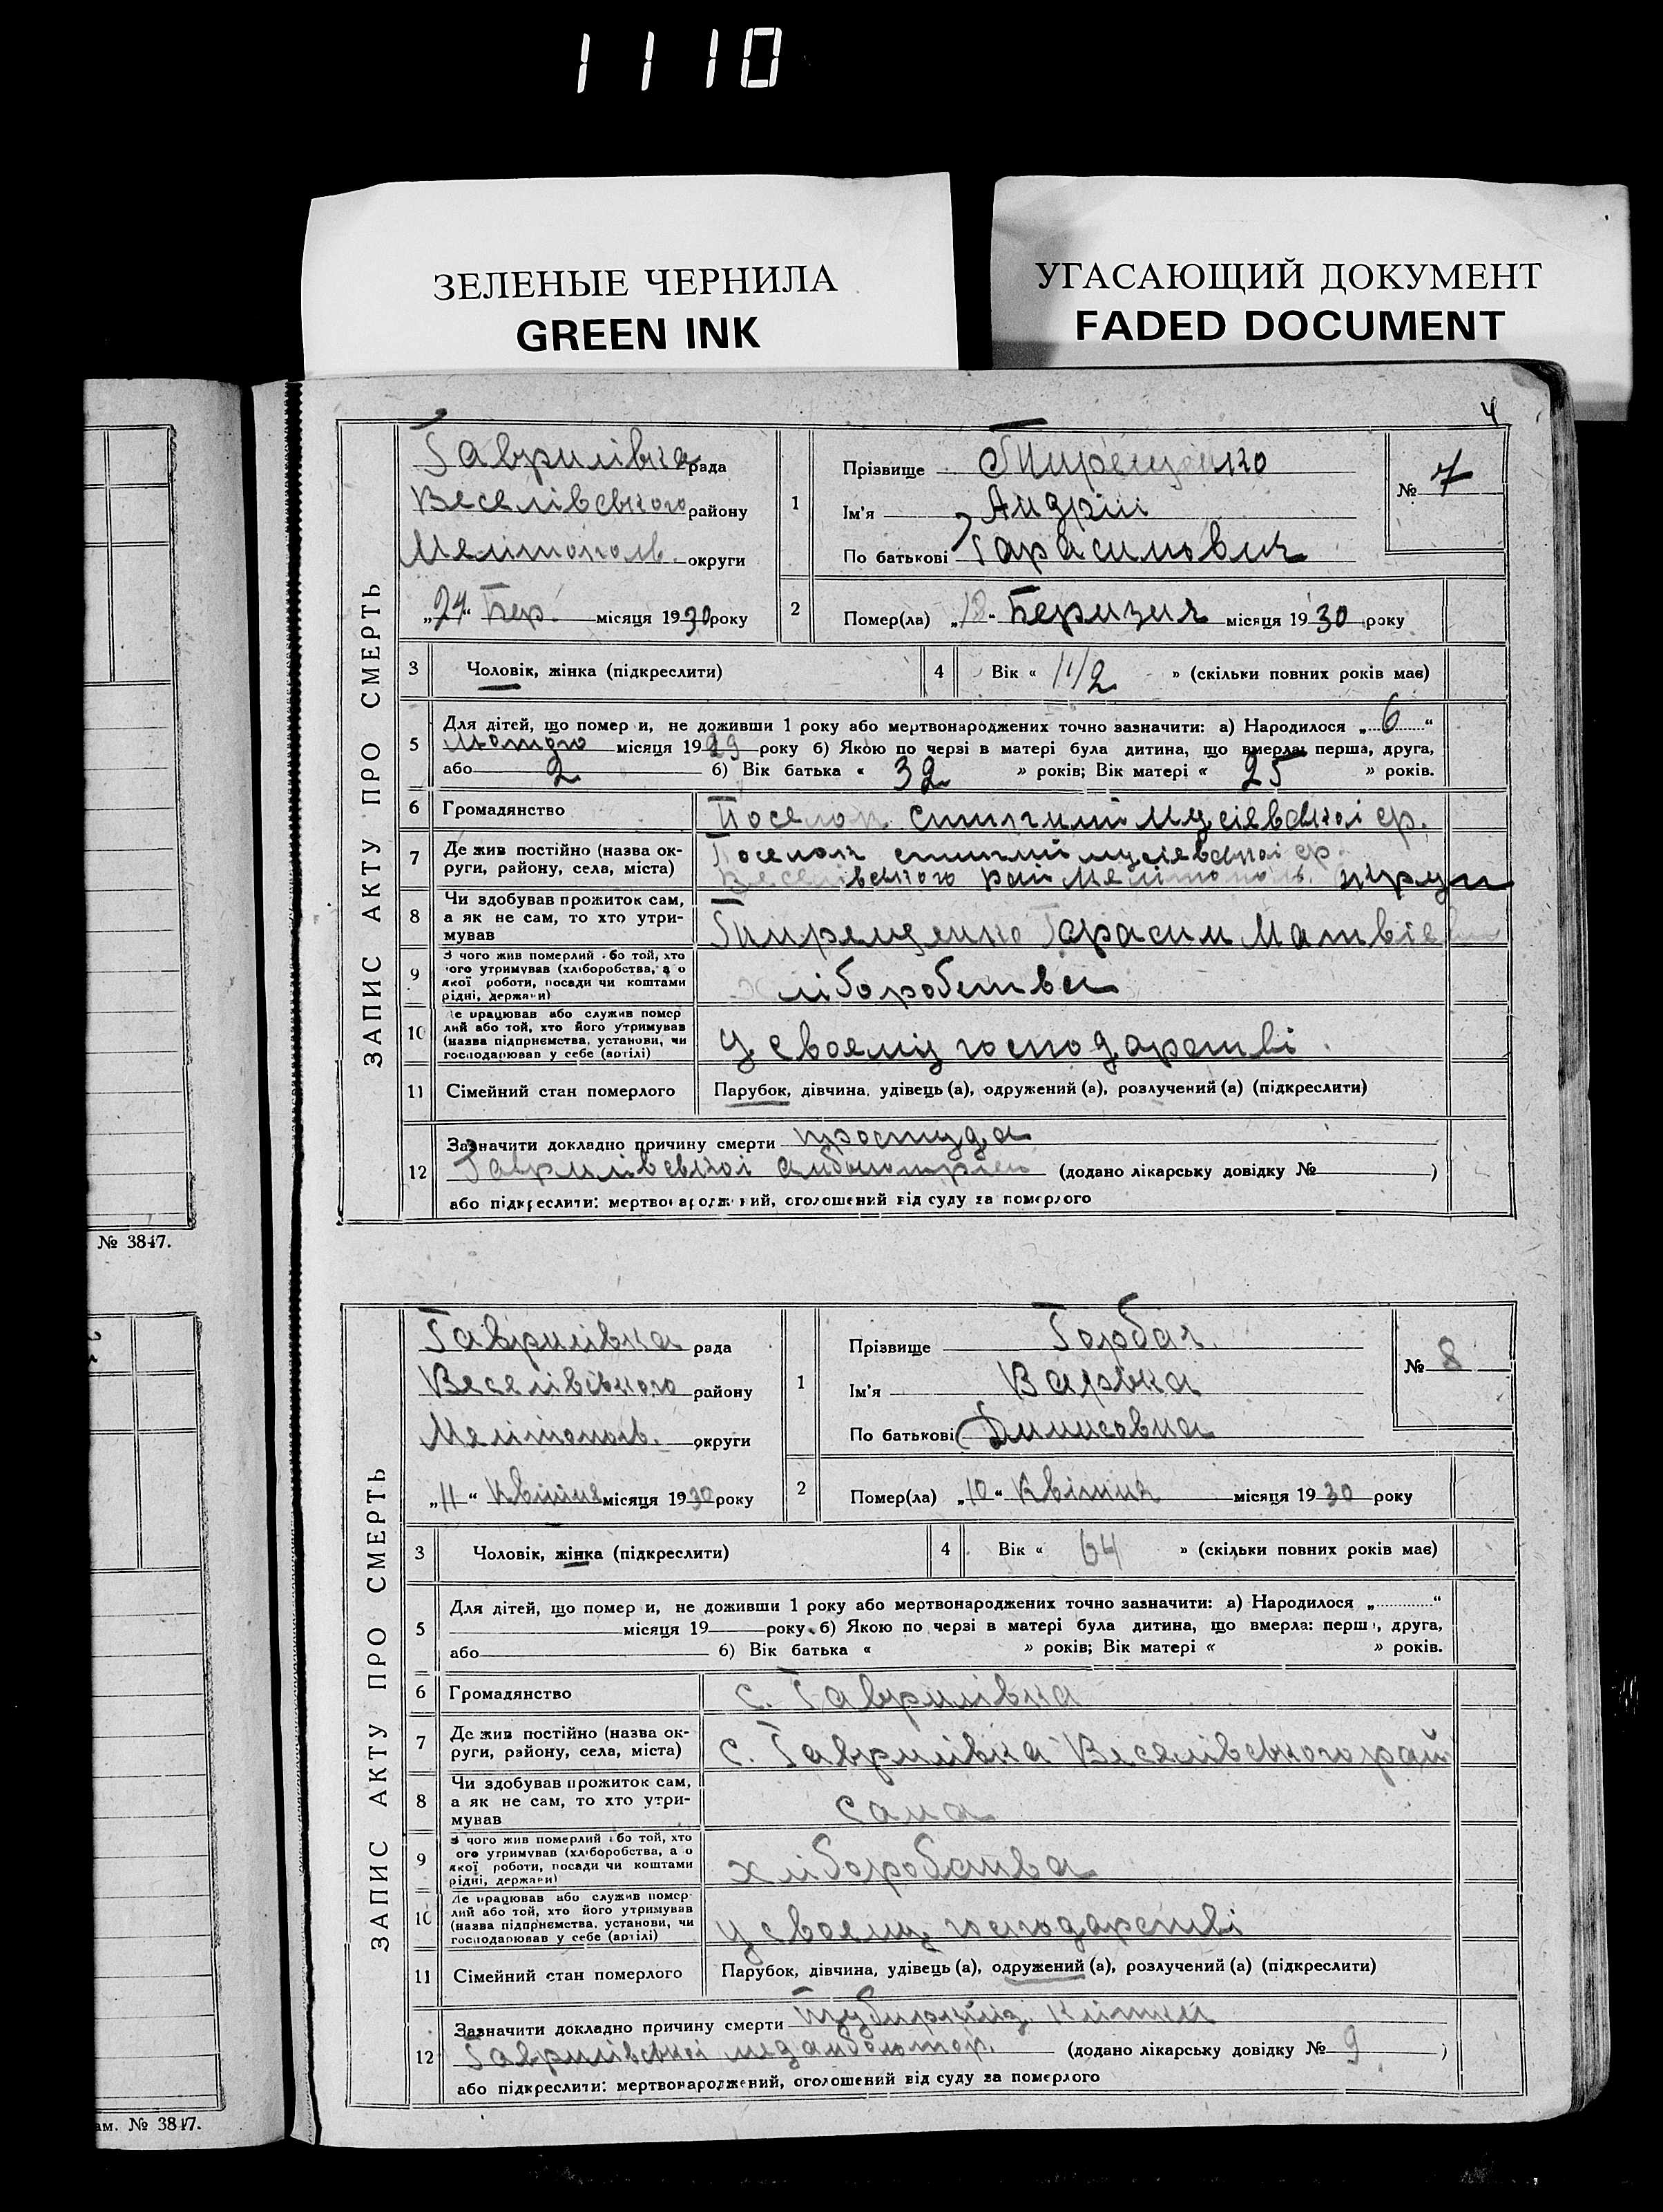 1110
ЗЕЛЕНЫЕ ЧЕРНИЛА
GREEN INK
УГАСАЮЩИЙ ДОКУМЕНТ
FADED DOCUMENT
4
ЗАПИС АКТУ ПРО СМЕРТЬ
Гаврилівка рада
Веселівського району
Мелітополь. округи
„24“ Бер. місяця 1930 року
1
Прізвище
Ім'я Андрій
По батькові Гарасимович
№ 7
2 Помер(ла) „18“ Березня місяця 1930 року
3 Чоловік, жінка (підкреслити)
4 Вік « 1 1/2 » (скільки повних років має)
5 Для дітей, що помер и, не доживши 1 року або мертвонароджених точно зазначити: а) Народилося „6“
Лютого місяця 1929 року б) Якою по черзі в матері була дитина, що вмерла: перша, друга,
або 2 б) Вік батька « 32 » років; Вік матері « 25 » років.
6 Громадянство Поселок
7 Де жив постійно (назва ок-
руги, району, села, міста) Поселок
Веселівського рай Мелітополь. округи
8 Чи здобував прожиток сам,
а як не сам, то хто утри-
мував Гарасим Матвіев
9 З чого жив померлий або той, хто
його утримував (хліборобства, а о
якої роботи, посади чи коштами
рідні, держави) хліборобства
10 Де працював або служив помер
лий або той, хто його утримував
(назва підприємства, установи, чи
господарював у себе (артілі) у своєму господарстві
11 Сімейний стан померлого Парубок, дівчина, удівець (а), одружений (а), розлучений (а) (підкреслити)
12 Зазначити докладно причину смерти простуда
Гаврилівської (додано лікарську довідку № )
або підкреслити: мертвонароджений, оголошений від суду за померлого
№ 3847.
ЗАПИС АКТУ ПРО СМЕРТЬ
Гаврилівка рада
Веселівського району
Мелітополь. округи
„11“ Квітня місяця 1930 року
1
Прізвище Горбач
Ім'я Варька
По батькові Динисовна
№ 8
2 Помер(ла) „10“ Квітня місяця 1930 року
3 Чоловік, жінка (підкреслити)
4 Вік « 64 » (скільки повних років має)
5 Для дітей, що помер и, не доживши 1 року або мертвонароджених точно зазначити: а) Народилося „ “
місяця 19 року б) Якою по черзі в матері була дитина, що вмерла: перш , друга,
або б) Вік батька « » років; Вік матері « » років.
6 Громадянство с. Гаврилівка
7 Де жив постійно (назва ок-
руги, району, села, міста) с. Гаврилівка Веселівського рай
8 Чи здобував прожиток сам,
а як не сам, то хто утри-
мував сама
9 З чого жив померлий або той, хто
його утримував (хліборобства, а о
якої роботи, посади чи коштами
рідні, держави) хліборобства
10 Де працював або служив помер-
лий або той, хто його утримував
(назва підприємства, установи, чи
господарював у себе (артілі) у своєму господарстві
11 Сімейний стан померлого Парубок, дівчина, удівець (а), одружений (а), розлучений (а) (підкреслити)
12 Зазначити докладно причину смерти
Гаврилівської (додано лікарську довідку № 9 )
або підкреслити: мертвонароджений, оголошений від суду за померлого
ам. № 3847.